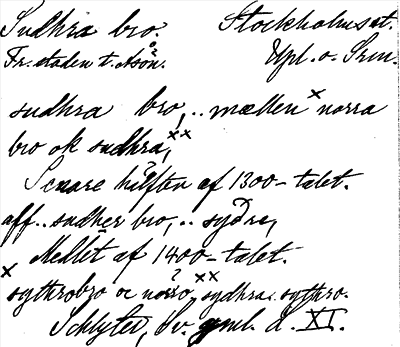 Sudhra bro. Stockholms st.
Fr. staden t. Åsön. Upl. o. Srm.
sudhra bro, .. mællen x norra
bro ok sudhra, xx
Senare hälften af 1300-talet.
aff .. sudher bro, .. sydra,
Medlet af 1400-talet.
x sythrobro oc norro, xx sydhra. sythro.
Schlyter, Sv. gml. d. XI.